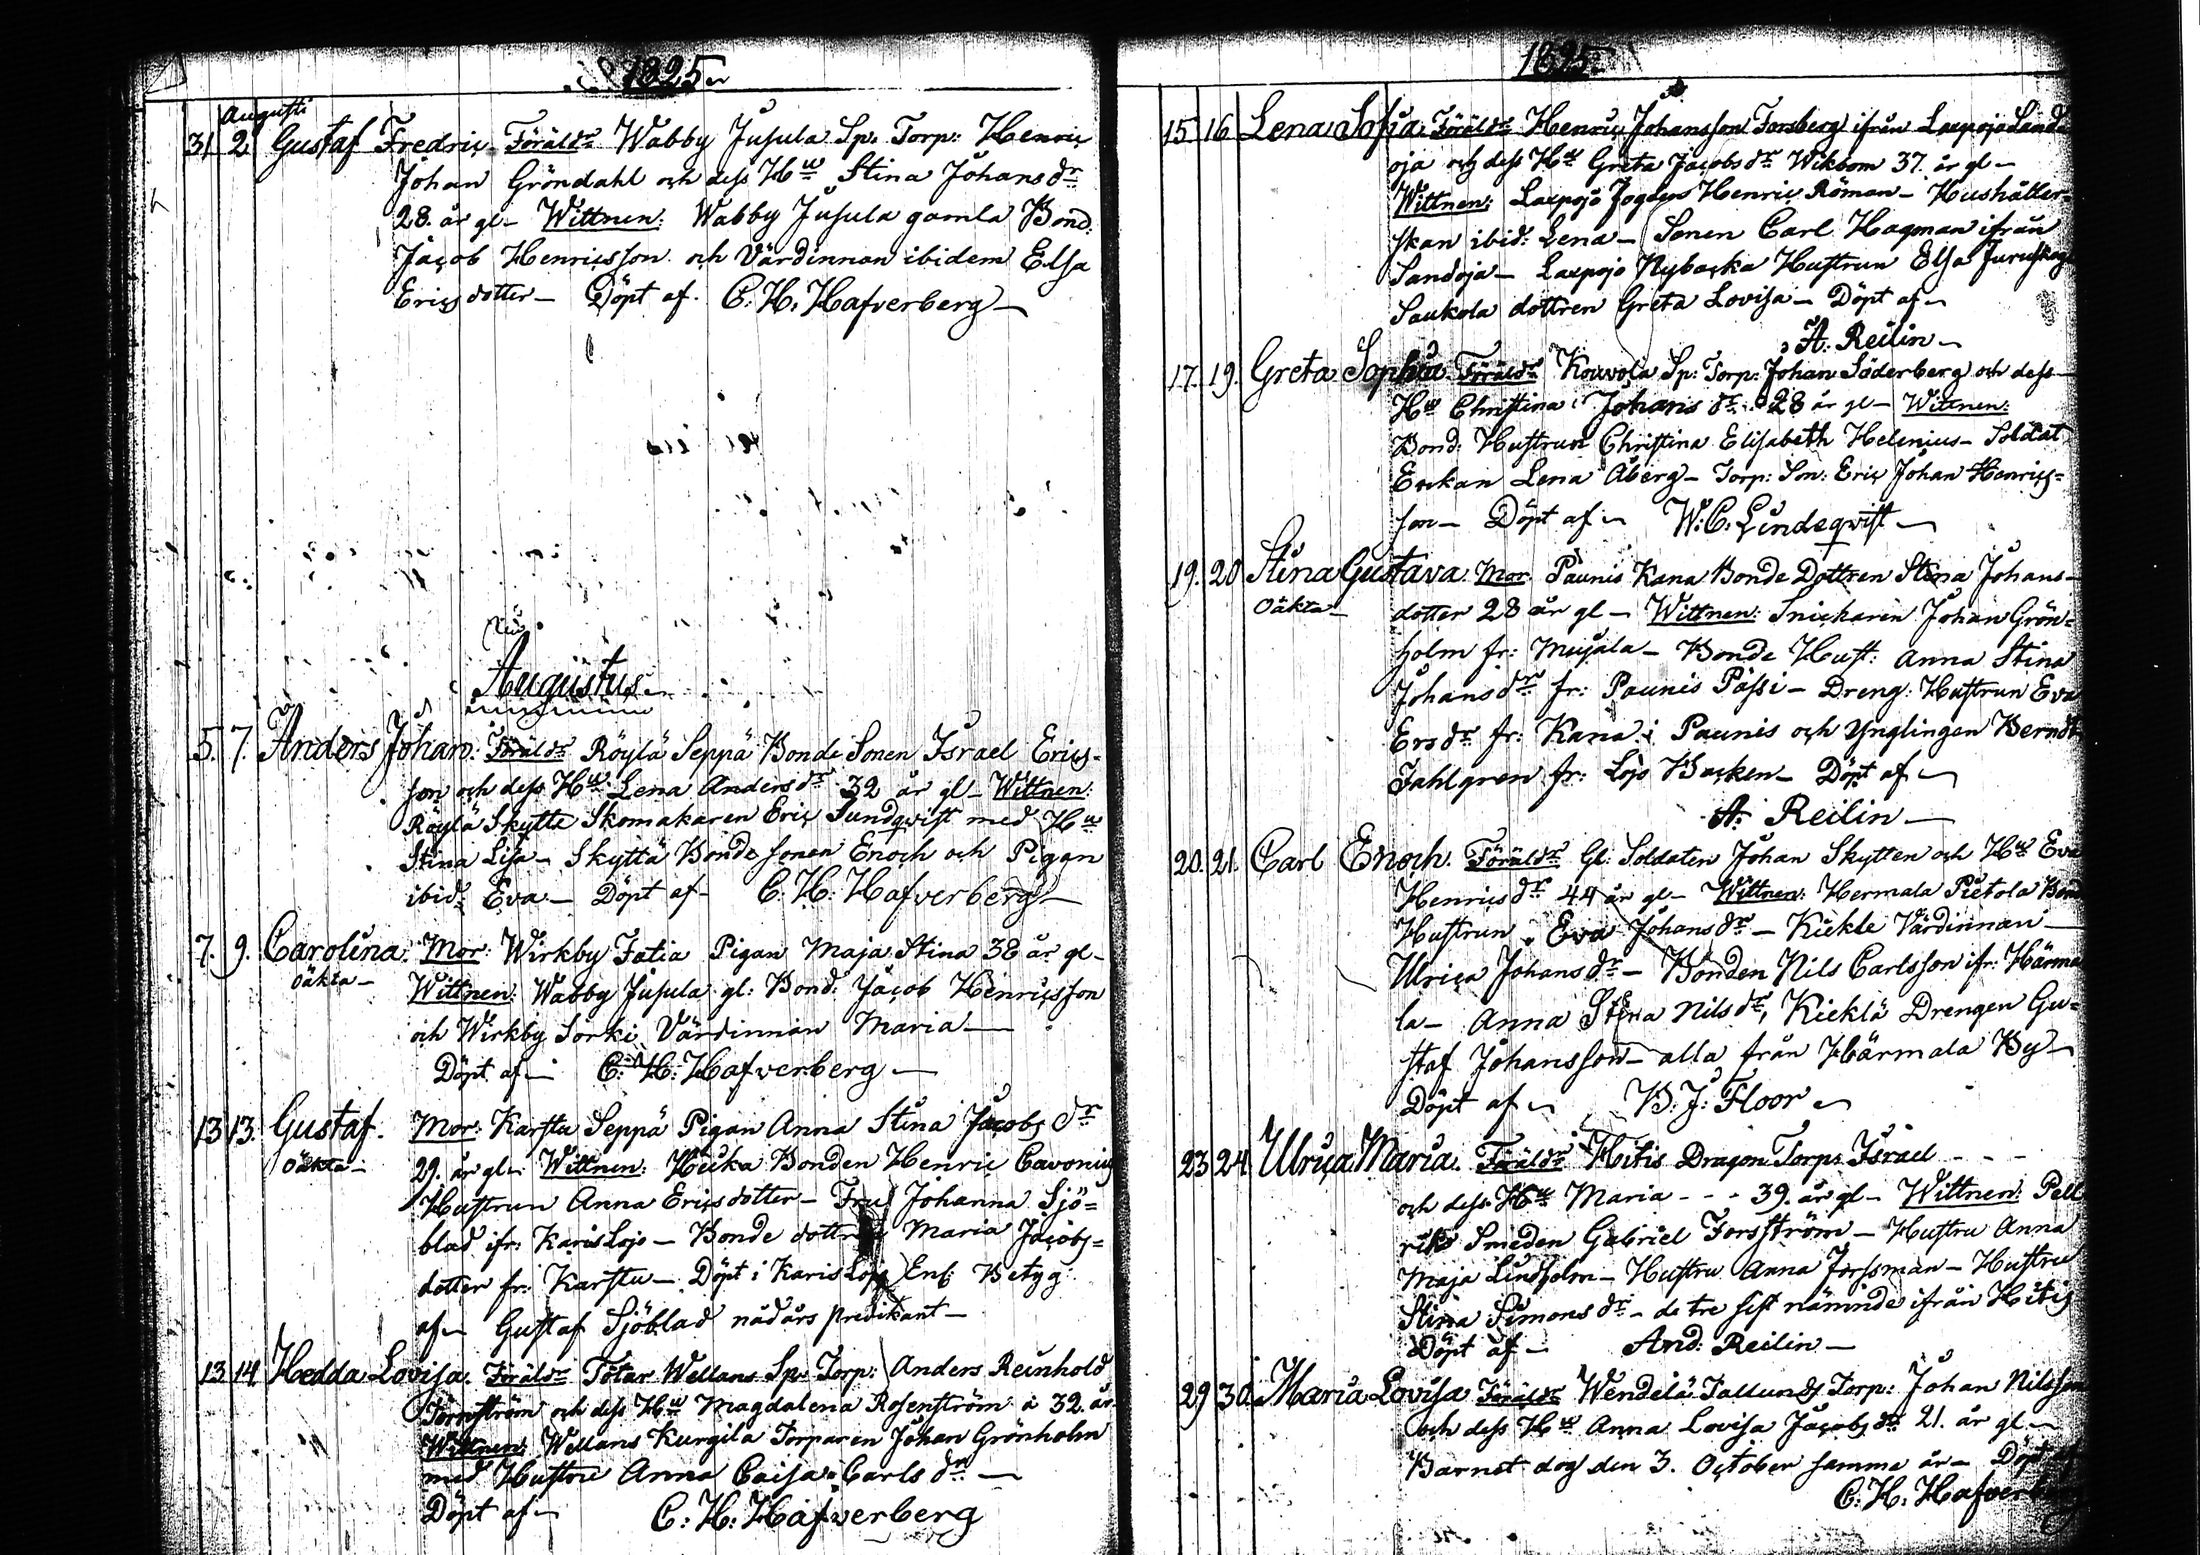 1825
Augusti
31 2 Gustaf Fredric. Föräldr Wabby Jusula Sp. Torp: Henric
Johan Gröndahl och dess Hu Stina Johansdr
28. år gl – Wittnen: Wabby Jusula gamla Bond.
Jacob Henricsson och Värdinnan ibidem Elsa
Ericsdotter – Döpt af. C. H. Hafverberg –
Augustus
5. 7. Anders Johan. Föräldr Röylä Seppä Bonde Sonen Israel Erics-
son och dess Hu Lena Andersdr 32 år gl – Wittnen:
Röylä Skytte Skomakaren Eric Sundqvist med Hu
Stina Lisa – Skyttä Bonde sonen Enoch och Pigan
ibid: Eva – Döpt af – C. H. Hafverberg –
7. 9. Carolina. Mor: Wirkby Fatia Pigan Maja Stina 38 år gl –
oäkta – Wittnen: Wabby Jusula gl: Bond: Jacob Henricsson
och Wirkby Sorki Värdinnan Maria –
Döpt af – C. H. Hafverberg –
13 13. Gustaf. Mor: Karstu Seppä Pigan Anna Stina Jacobsdr
oäkta – 29. år gl – Wittnen: Bonden Henric Cavonius
Hustrun Anna Ericsdotter – Fru Johanna Sjö=
blad ifr: Karislojo – Bonde Maria Jacobs=
dotter fr: Karstu – Döpt i Karislojo Enl: Betyg
af – Gustaf Sjöblad nådårs predikant –
13 14 Hedda Lovisa. Föräldr Totar Wellans Sp: Torp: Anders Reinhold
Törnström och dess Hu Magdalena Rosenström i 32. år
Wittnen: Wellans Kurgila Torparen Johan Grönholm
med Hustru Anna Caisa Carlsdr –
Döpt af – C. H. Hafverberg
1825
15. 16 Lena Sofia. Föräldr Henric Johansson Forsberg ifrån Laxpojo Sand
oja och dess Hu Greta Jacobsdr Wikbom 37. år gl –
Wittnen: Laxpojo Henric Röman – Hushåller-
skan ibid: Lena – Sonen Carl Hagman ifrån
Sandoja – Laxpojo Nybacka Hustrun Elsa
Saukola dottren Greta Lovisa – Döpt af –
A. Reilin –
17. 19. Greta Sophia. Föräldr Kouvola Sp: Torp: Johan Söderberg och dess
Hu Christina Johansdr 28 år gl – Wittnen:
Bond: Hustrun Christina Elisabeth Helenius – Soldat
Enkan Lena Åberg – Torp: Son: Eric Johan Henrics=
son – Döpt af – W. C. Lindeqvist –
19. 20 Stina Gustava. Mor Paunis Kana Bonde Dottren Stina Johans-
oäkta – dotter 28 år gl – Wittnen: Snickaren Johan Grön=
holm fr: Mujala – Bonde Hust: Anna Stina
Johansdr fr: Paunis Passi – Dreng: Hustrun Eva
Ersdr fr: Kana i Paunis och Ynglingen Berndt
Fahlgren fr: Lojo Backen – Döpt af –
A. Reilin –
20. 21. Carl Enoch. Föräldr Gl: Soldaten Johan Skytten och Hu Eva
Henricsdr 44 år gl – Wittnen: Hermala Pietola Bond
Hustrun Eva Johansdr – Kiekle Värdinnan –
Ulrica Johansdr – Bonden Nils Carlsson ifr: Härma
la – Anna Stina Nilsdr, Kieklä Drengen Gu=
staf Johansson – alla från Härmala By –
Döpt af – B. J. Floor –
23 24. Ulrica Maria. Föräldr Hitis Dragon Torp: Israel - - -
och dess Hu Maria - - - 39. år gl – Wittnen:
Smeden Gabriel Forsström – Hustru Anna
Maja Lindholm – Hustru Anna Forssman – Hustru
Stina Simonsdr – de tre sist nämnde ifrån Hitis
Döpt af – And. Reilin –
29 30. Maria Lovisa. Föräldr Wendelä Torp: Johan Nilsson
och dess Hu Anna Lovisa Jacobsdr 21. år gl –
Barnet dog den 3. October samma år – Döpt af
C. H. Hafverberg